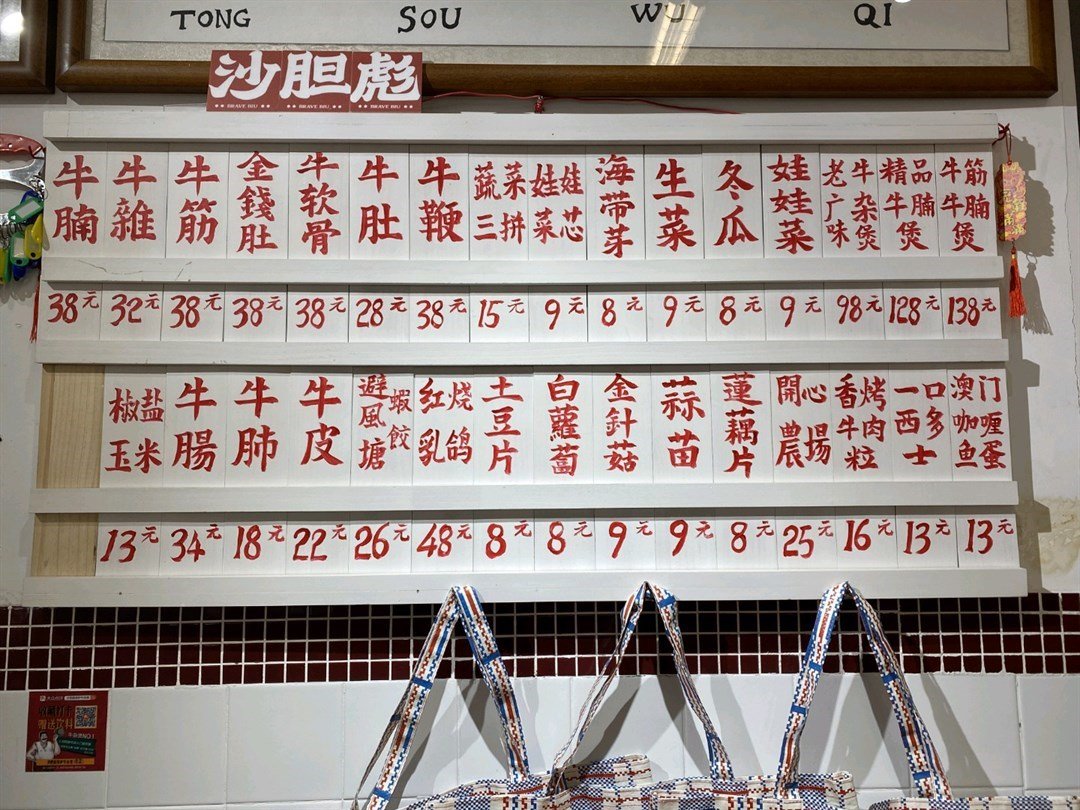 TONG SOU WU QI
沙胆彪
BRAVE BIU BRAVE BIU BRAVE BIU
牛腩 牛雜 牛筋 金錢肚 牛软骨 牛肚 牛鞭 蔬菜三拼 娃娃菜芯 海带芽 生菜 冬瓜 娃娃菜 老广味牛杂煲 精品牛腩煲 牛筋牛腩煲
38元 32元 38元 38元 38元 28元 38元 15元 9元 8元 9元 8元 9元 98元 128元 138元
椒盐玉米 牛腸 牛肺 牛皮 避風塘蝦餃 红烧乳鸽 土豆片 白蘿蔔 金針菇 蒜苗 蓮藕片 開心農場 香烤牛肉粒 一口西多士 澳门咖喱鱼蛋
13元 34元 18元 22元 26元 48元 8元 8元 9元 9元 8元 25元 16元 13元 13元
收藏打卡
赠送饮料